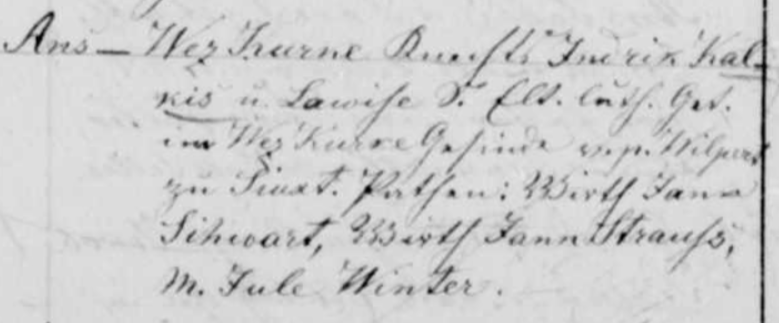 Ans – Wez Kurne Knechts Indrik Kal-
kis u. Lawise S. Elt. luth. Get.
im Wez Kurne Gesinde v. p. Hilpert
zu Siuxt. Pathen: Wirth Jann
Schwart, Wirth Jann Strauss,
M. Jule Winter.